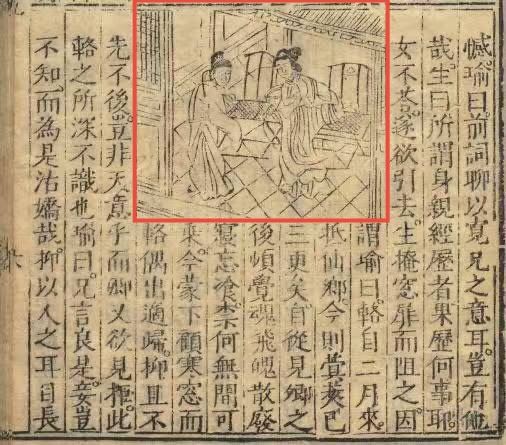 憾瑜曰前詞聊以寬兄之意耳豈有他
哉生曰所謂身親經歷者果歷何事耶
女不荅遂欲引去生掩窓扉而阻之因
謂瑜曰輅自二月來
抵仙鄉今則蓂莢已
三更矣自從見卿之
後頓覺魂飛魄散發
寢忘飧柰何無間可
乘今蒙下顧寒窓而
輅偶出適歸抑且不
先不後豈非天意乎而卿又欲見拒此
輅之所深不識也瑜曰兄言良是妾豈
不知而為是沽嬌哉抑以人之耳目長